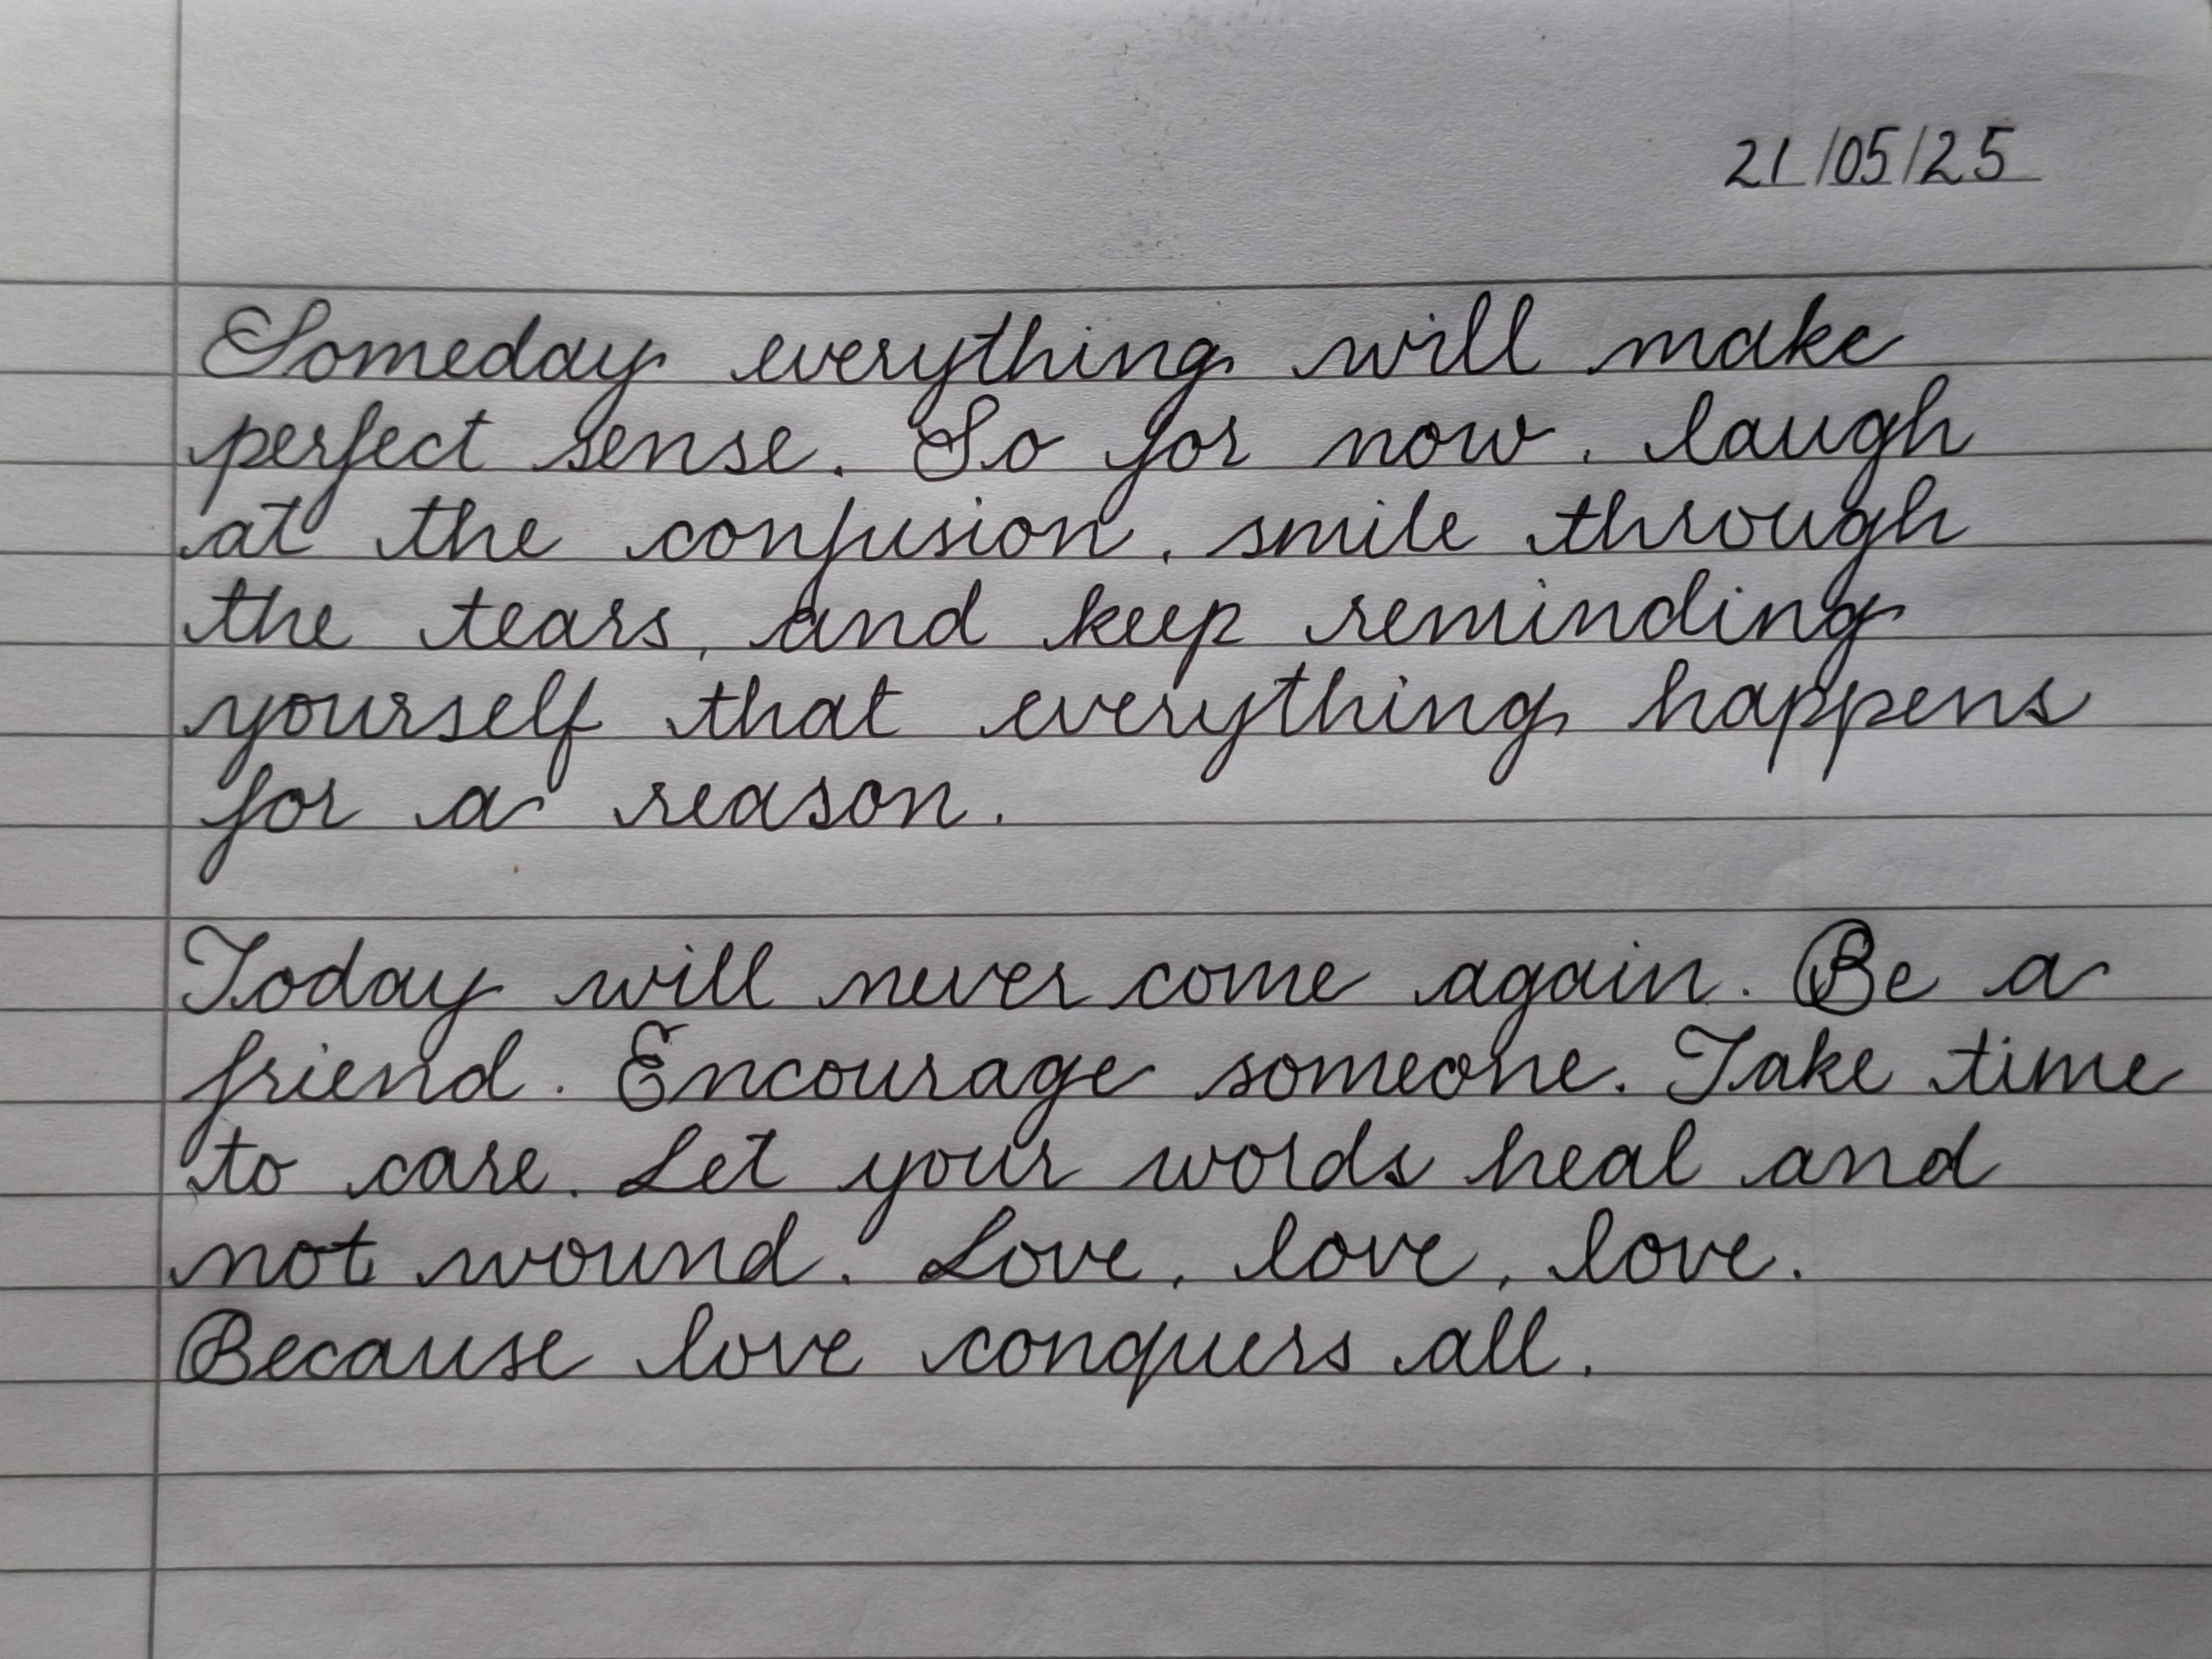 21/05/25
Someday everything will make
perfect sense. So for now, laugh
at the confusion, smile through
the tears, and keep reminding
yourself that everything happens
for a reason.
Today will never come again. Be a
friend. Encourage someone. Take time
to care. Let your words heal and
not wound. Love, love, love.
Because love conquers all.